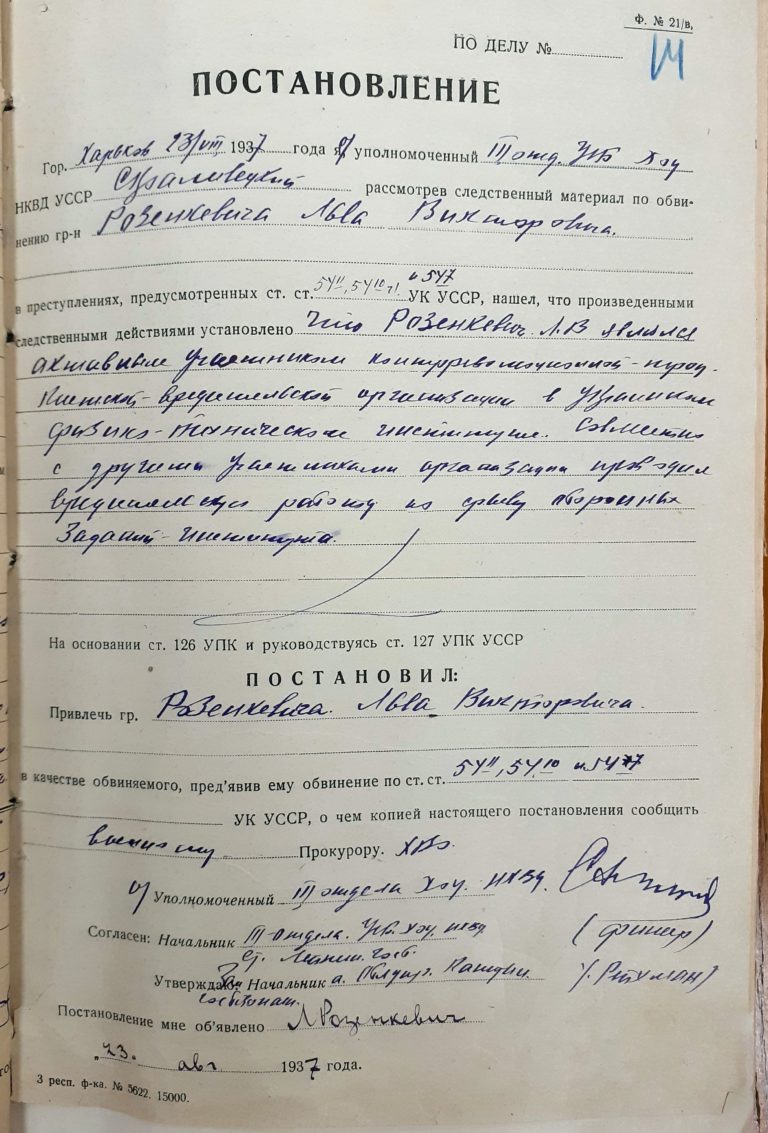 Ф. № 21/в,
ПО ДЕЛУ №
14
ПОСТАНОВЛЕНИЕ
Гор. Харьков 23/VIII 1937 года я о/ уполномоченный III отд. УГБ ХОУ
НКВД УССР рассмотрев следственный материал по обви-
нению гр-н Розенкевича Льва Викторовича.
в преступлениях, предусмотренных ст. ст. 54-11, 54-10 ч1 и 54-7 УК УССР, нашел, что произведенными
следственными действиями установлено Что Розенкевич Л.В являлся
активным участником контрреволюционной-
вредительской организации в Украинском
физико-техническом институте. Совместно
с другими участниками организации проводил
вредительскую работу по срыву оборонных
заданий института.
На основании ст. 126 УПК и руководствуясь ст. 127 УПК УССР
ПОСТАНОВИЛ:
Привлечь гр. Розенкевича Льва Викторовича.
в качестве обвиняемого, пред'явив ему обвинение по ст. ст. 54-11, 54-10 и 54-7
УК УССР, о чем копией настоящего постановления сообщить
военному Прокурору. ХВО
о/ Уполномоченный III отдела ХОУ НКВД
Согласен: Начальник III отдела УГБ ХОУ НКВД
ст. лейтен. госб. (Фишер)
Утверждаю Начальник (Рейхман)
Постановление мне об'явлено ЛРозенкевич
„23 авг 1937 года.
3 респ. ф-ка. № 5622. 15000.